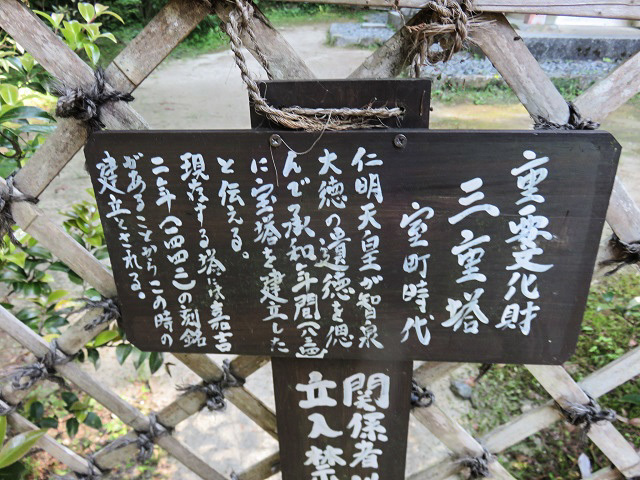 重要文化財
三重塔
室町時代
仁明天皇が智泉
大徳の遺徳を偲
んで承和年間(八三
に宝塔を建立した
と伝える。
現存する塔は嘉吉
二年(一四四二)の刻銘
があることからこの時の
建立とされる。
関係者
立入禁